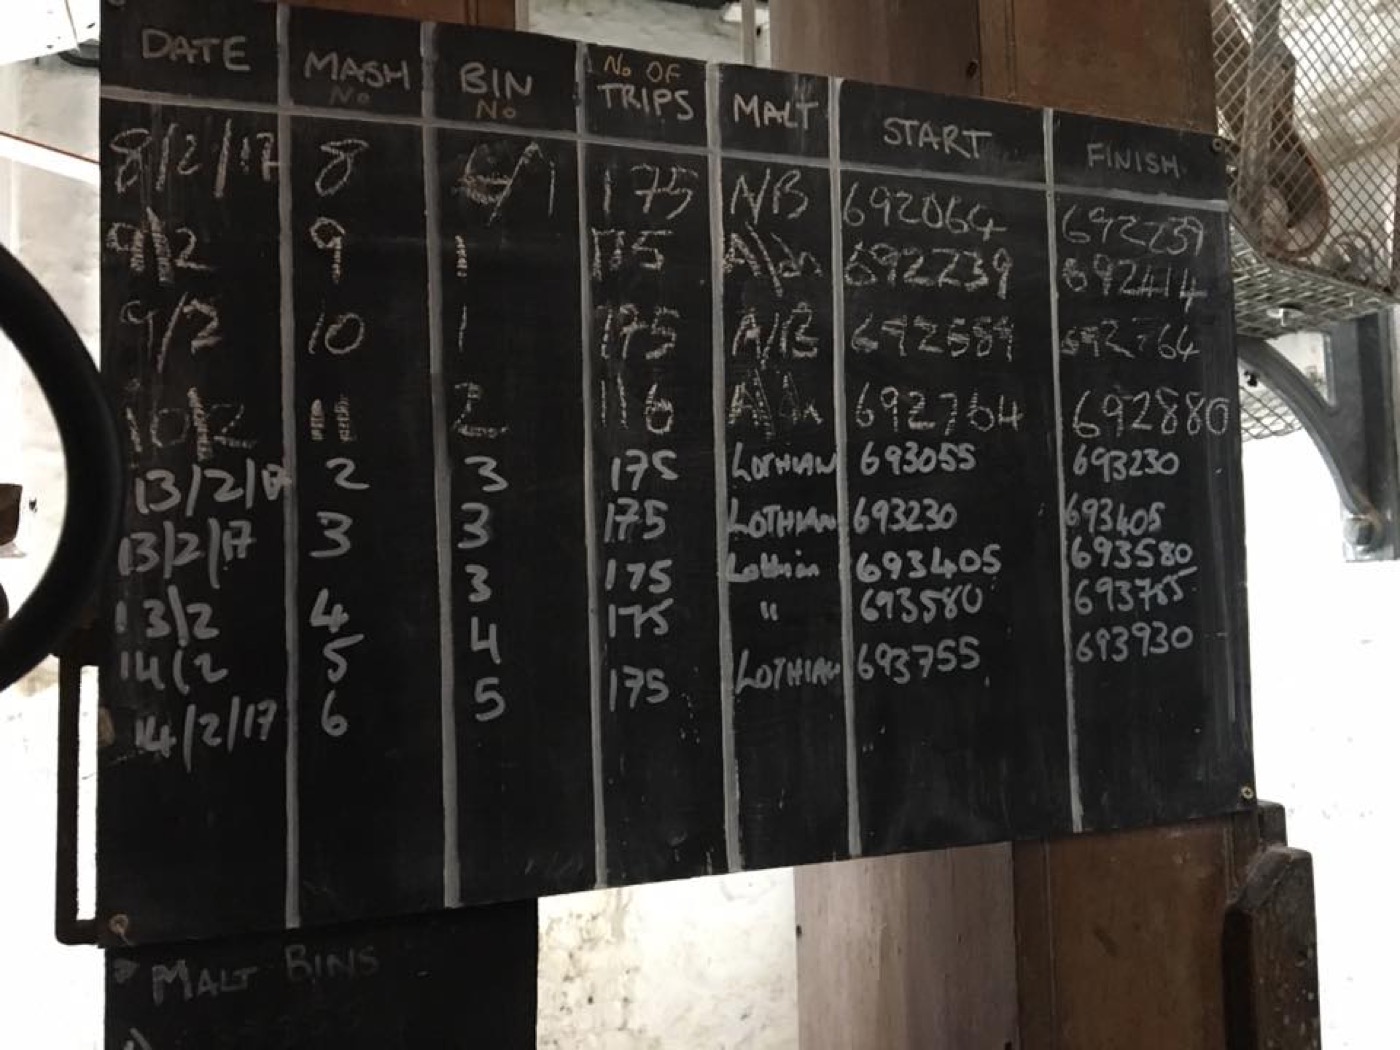 DATE MASH No BIN No No OF TRIPS MALT START FINISH
8/2/17 8 1 175 N/B 692064 692239
9/2 9 1 175 692239 692414
9/2 10 1 175 A/B 692589 692764
10/2 11 2 116 692764 692880
13/2/17 2 3 175 LOTHIAN 693055 693230
13/2/17 3 3 175 LOTHIAN 693230 693405
13/2 4 3 175 Lothian 693405 693580
14/2 5 4 175 " 693580 693755
14/2/17 6 5 175 LOTHIAN 693755 693930
MALT BINS